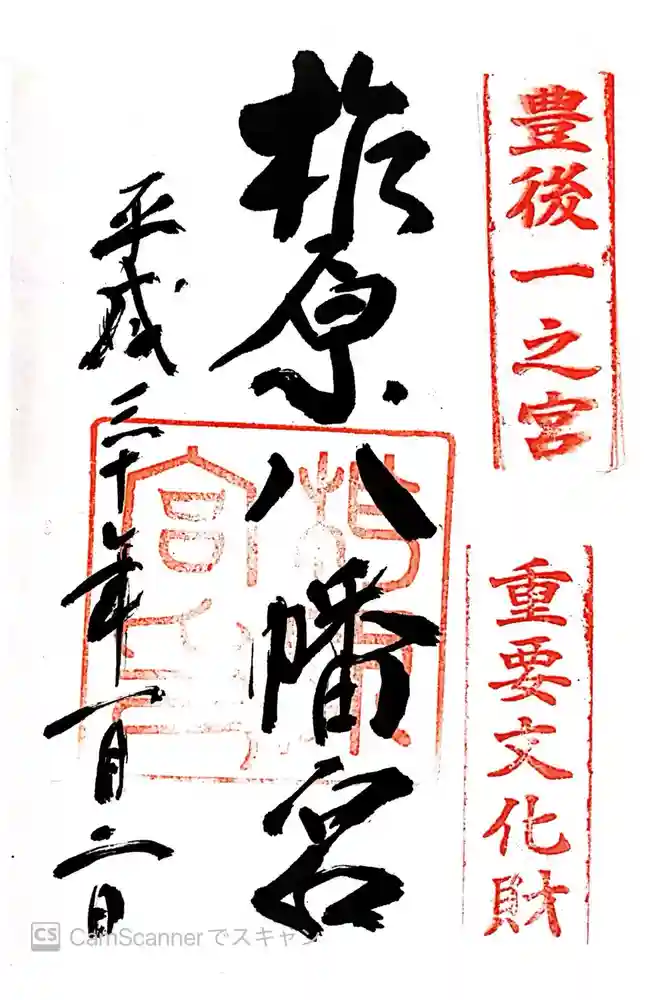 豊後一之宮
重要文化財
柞原八幡宮
平成三十年一月二日
CS CamScannerでスキャン